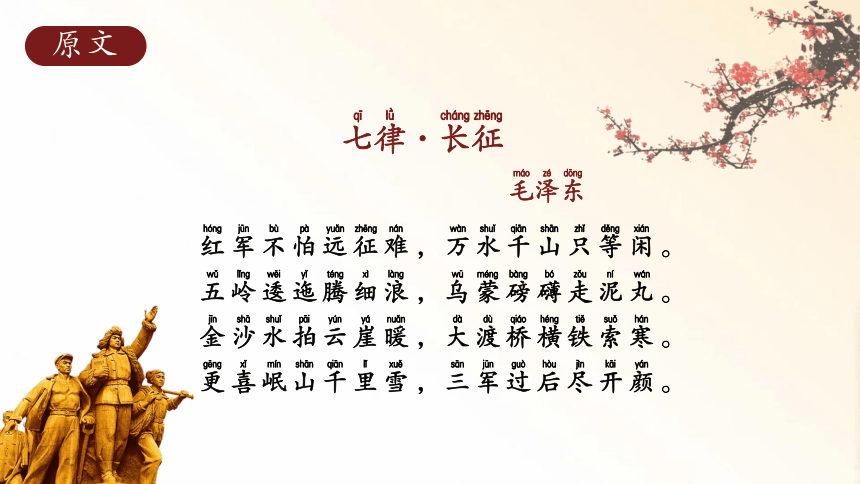 原文
qī lǜ cháng zhēng
七律·长征
máo zé dōng
毛泽东
hóng jūn bù pà yuǎn zhēng nán wàn shuǐ qiān shān zhǐ děng xián
红军不怕远征难，万水千山只等闲。
wǔ lǐng wēi yǐ téng xì làng wū méng bàng bó zǒu ní wán
五岭逶迤腾细浪，乌蒙磅礴走泥丸。
jīn shā shuǐ pāi yún yá nuǎn dà dù qiáo héng tiě suǒ hán
金沙水拍云崖暖，大渡桥横铁索寒。
gèng xǐ mín shān qiān lǐ xuě sān jūn guò hòu jìn kāi yán
更喜岷山千里雪，三军过后尽开颜。